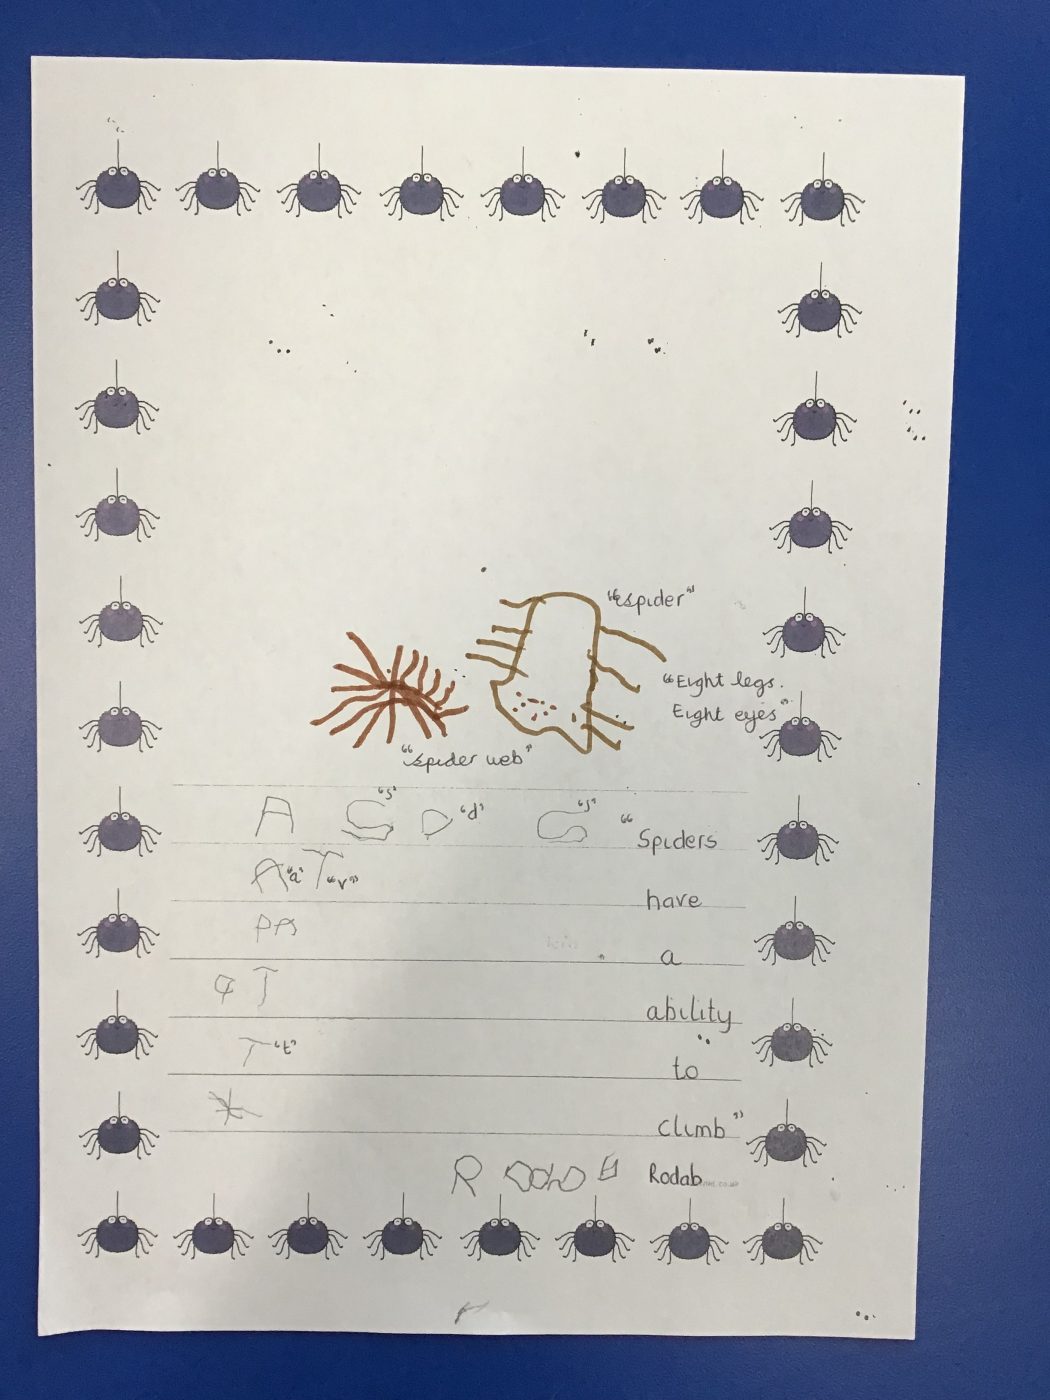 "spider"
"Eight legs.
Eight eyes"
"spider web"
A S "s" D "d" S "s" "Spiders
A "a" T "v" have
PA a
T ability
T "t" to
climb"
R Rodab